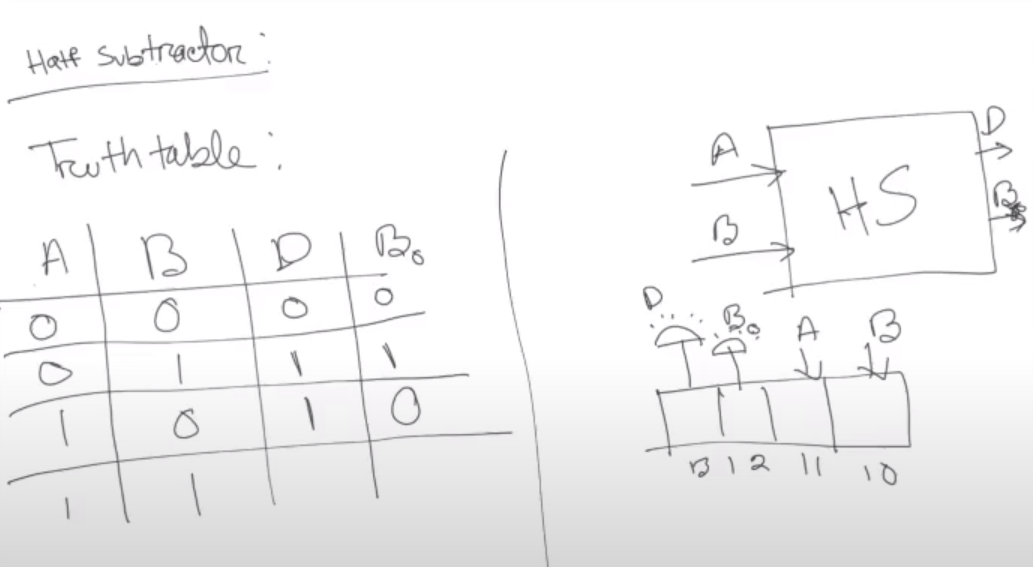 Half Subtractor:
Truth table:
A B D B₀
0 0 0 0
0 1 1 1
1 0 1 0
1 1
A
B
HS
D
B₀
D B₀ A B
13 12 11 10